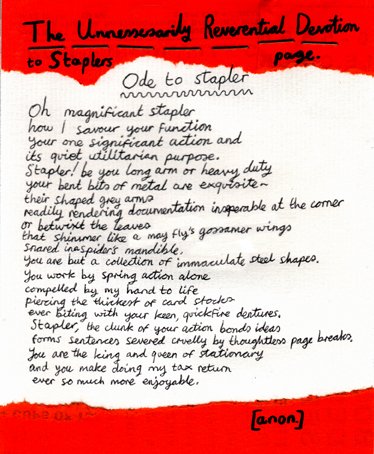 The Unnessesarily Reverential Devotion
to Staplers page.
Ode to stapler
Oh magnificent stapler
how I savour your function
Your one significant action and
its quiet, utilitarian purpose.
Stapler! be you long arm or heavy duty
your bent bits of metal are exquisite~
their shaped grey arms
readily rendering documentation inseperable at the corner
or betwixt the leaves
that shimmer like a may fly's gossamer wings
snared in a spider's mandible.
You are but a collection of immaculate steel shapes.
You work by spring action alone
compelled by my hand to life
piercing the thickest of card stocks
ever biting with your keen, quickfire dentures.
Stapler, the clunk of your action bonds ideas
forms sentences severed cruelly by thoughtless page breaks.
You are the king and queen of stationary
and you make doing my tax return
ever so much more enjoyable.
[anon.]